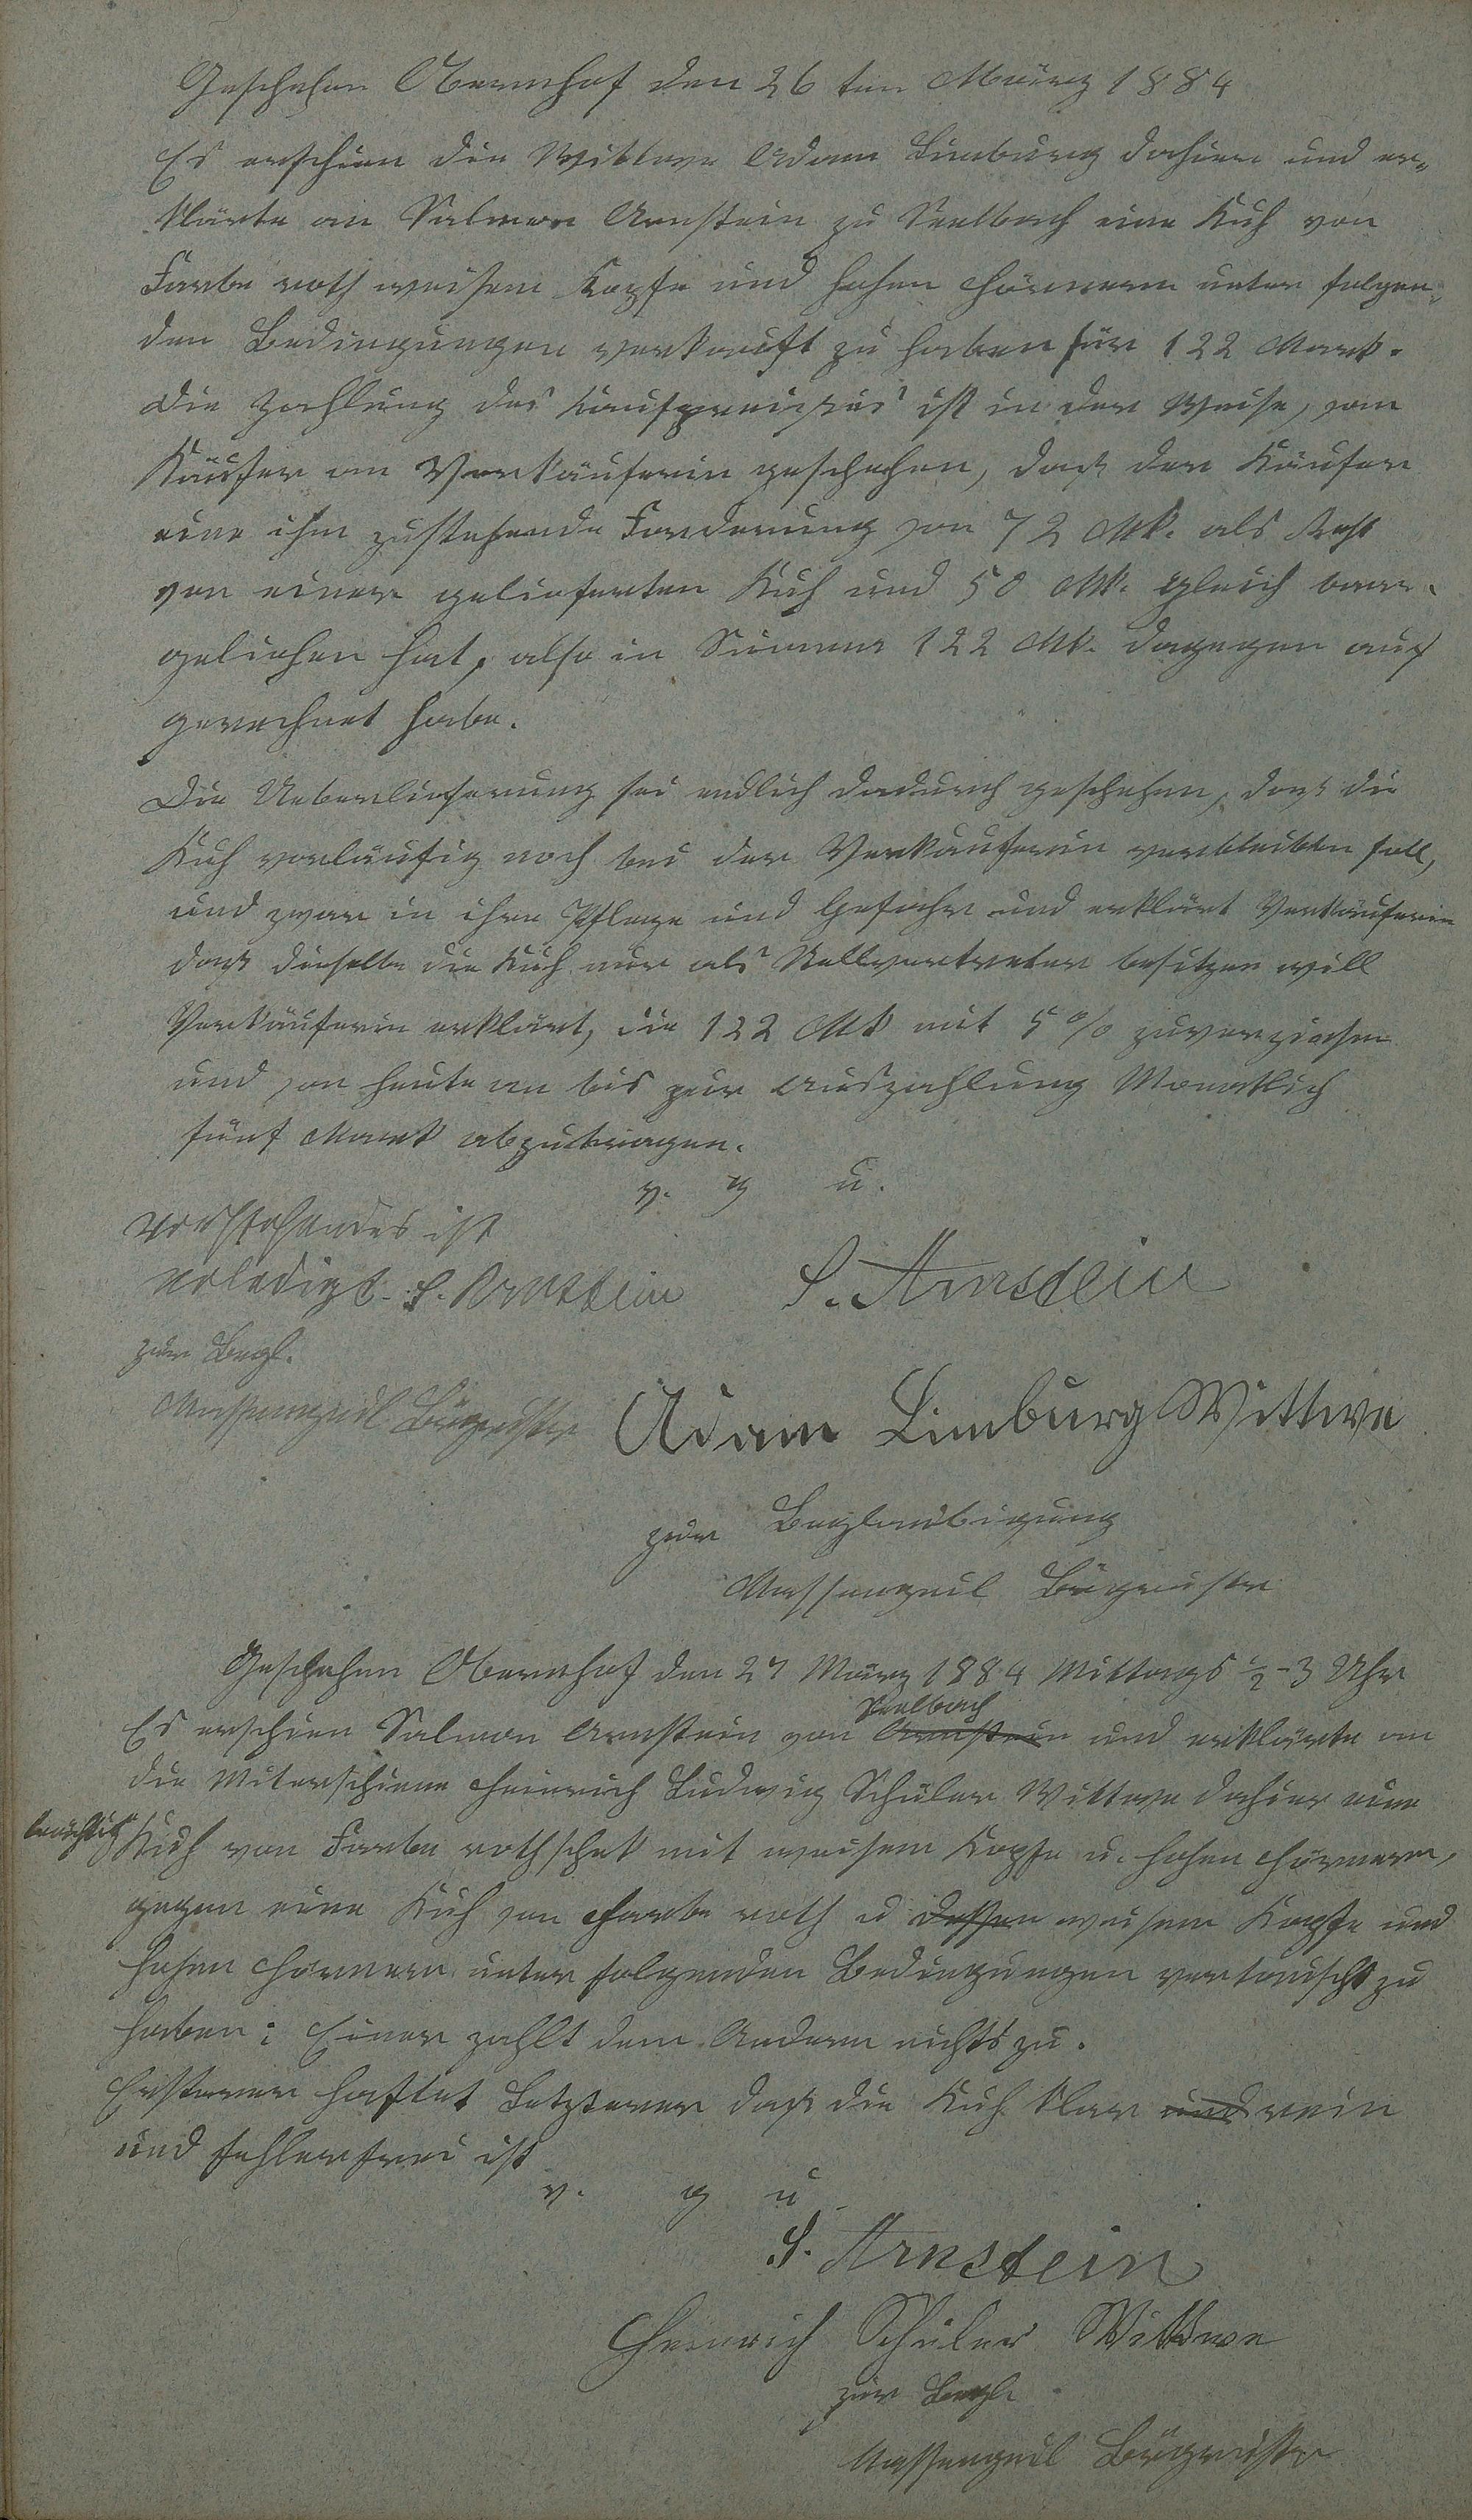 Geschehen Obernhof den 26 ten März 1884
Es erschien die Wittwe Adam Limburg dahier und er-
klärte an Salmon Arnstein zu Seelbach eine Kuh von
Farbe roth weisem Kopfe und hohen Hörnern unter folgen-
den Bedingungen verkauft zu haben für 122 Mark.
Die Zahlung des Kaufpreißes ist in der Weise, vom
Käufer an Verkäuferin geschehen, daß der Käufer
eine ihm zustehende Forderung von 72 Mk. als Rest
von einer gelieferten Kuh und 50 Mk. gleich baar
geliehen hat, also in Summa 122 Mk. dagegen auf
gerechnet habe.
Die Ueberlieferung sei endlich dadurch geschehen, daß die
Kuh vorläufig noch bei der Verkäuferin verbleiben soll,
und zwar in ihre Pflege und Gefahr und erklärt Verkäuferin
daß dieselbe die Kuh nur als Stellvertreter besitzen will
Verkäuferin erklärt, die 122 Mk mit 5 % zuverzinsen
und von heute an bis zur Auszahlung Monatlich
fünf Mark abzutragen.
v. g u.
Vorstehendes ist
erledigt. S. Arnstein S. Arnstein
zur Begl.
Massengeil Bürgmstr Adam Limburg Wittwe
zur Beglaubigung
Massengeil Bürgmstr
Geschehen Obernhof den 27 März 1884 Mittags ½-3 Uhr
Seelbach
Es erschien Salmon Arnstein von Arnstein und erklärte an
die Miterschiene Heinrich Ludwig Schüler Wittwe dahier eine
trächtig Kuh von Farbe rothschek mit weisem Kopfe u. hohen Hörnern,
gegen eine Kuh von Farbe roth u dessen weisem Kopfe und
hohen Hörnern unter folgenden Bedingungen vertauscht zu
haben: Einer zahlt dem Andern nichts zu.
Ersterer haftet Letzterer daß die Kuh klar und rein
und fehlerfrei ist
v. g u
S. Arnstein
Heinrich Schüler Wittwe
zur Begl.
Massengeil Bürgmstr